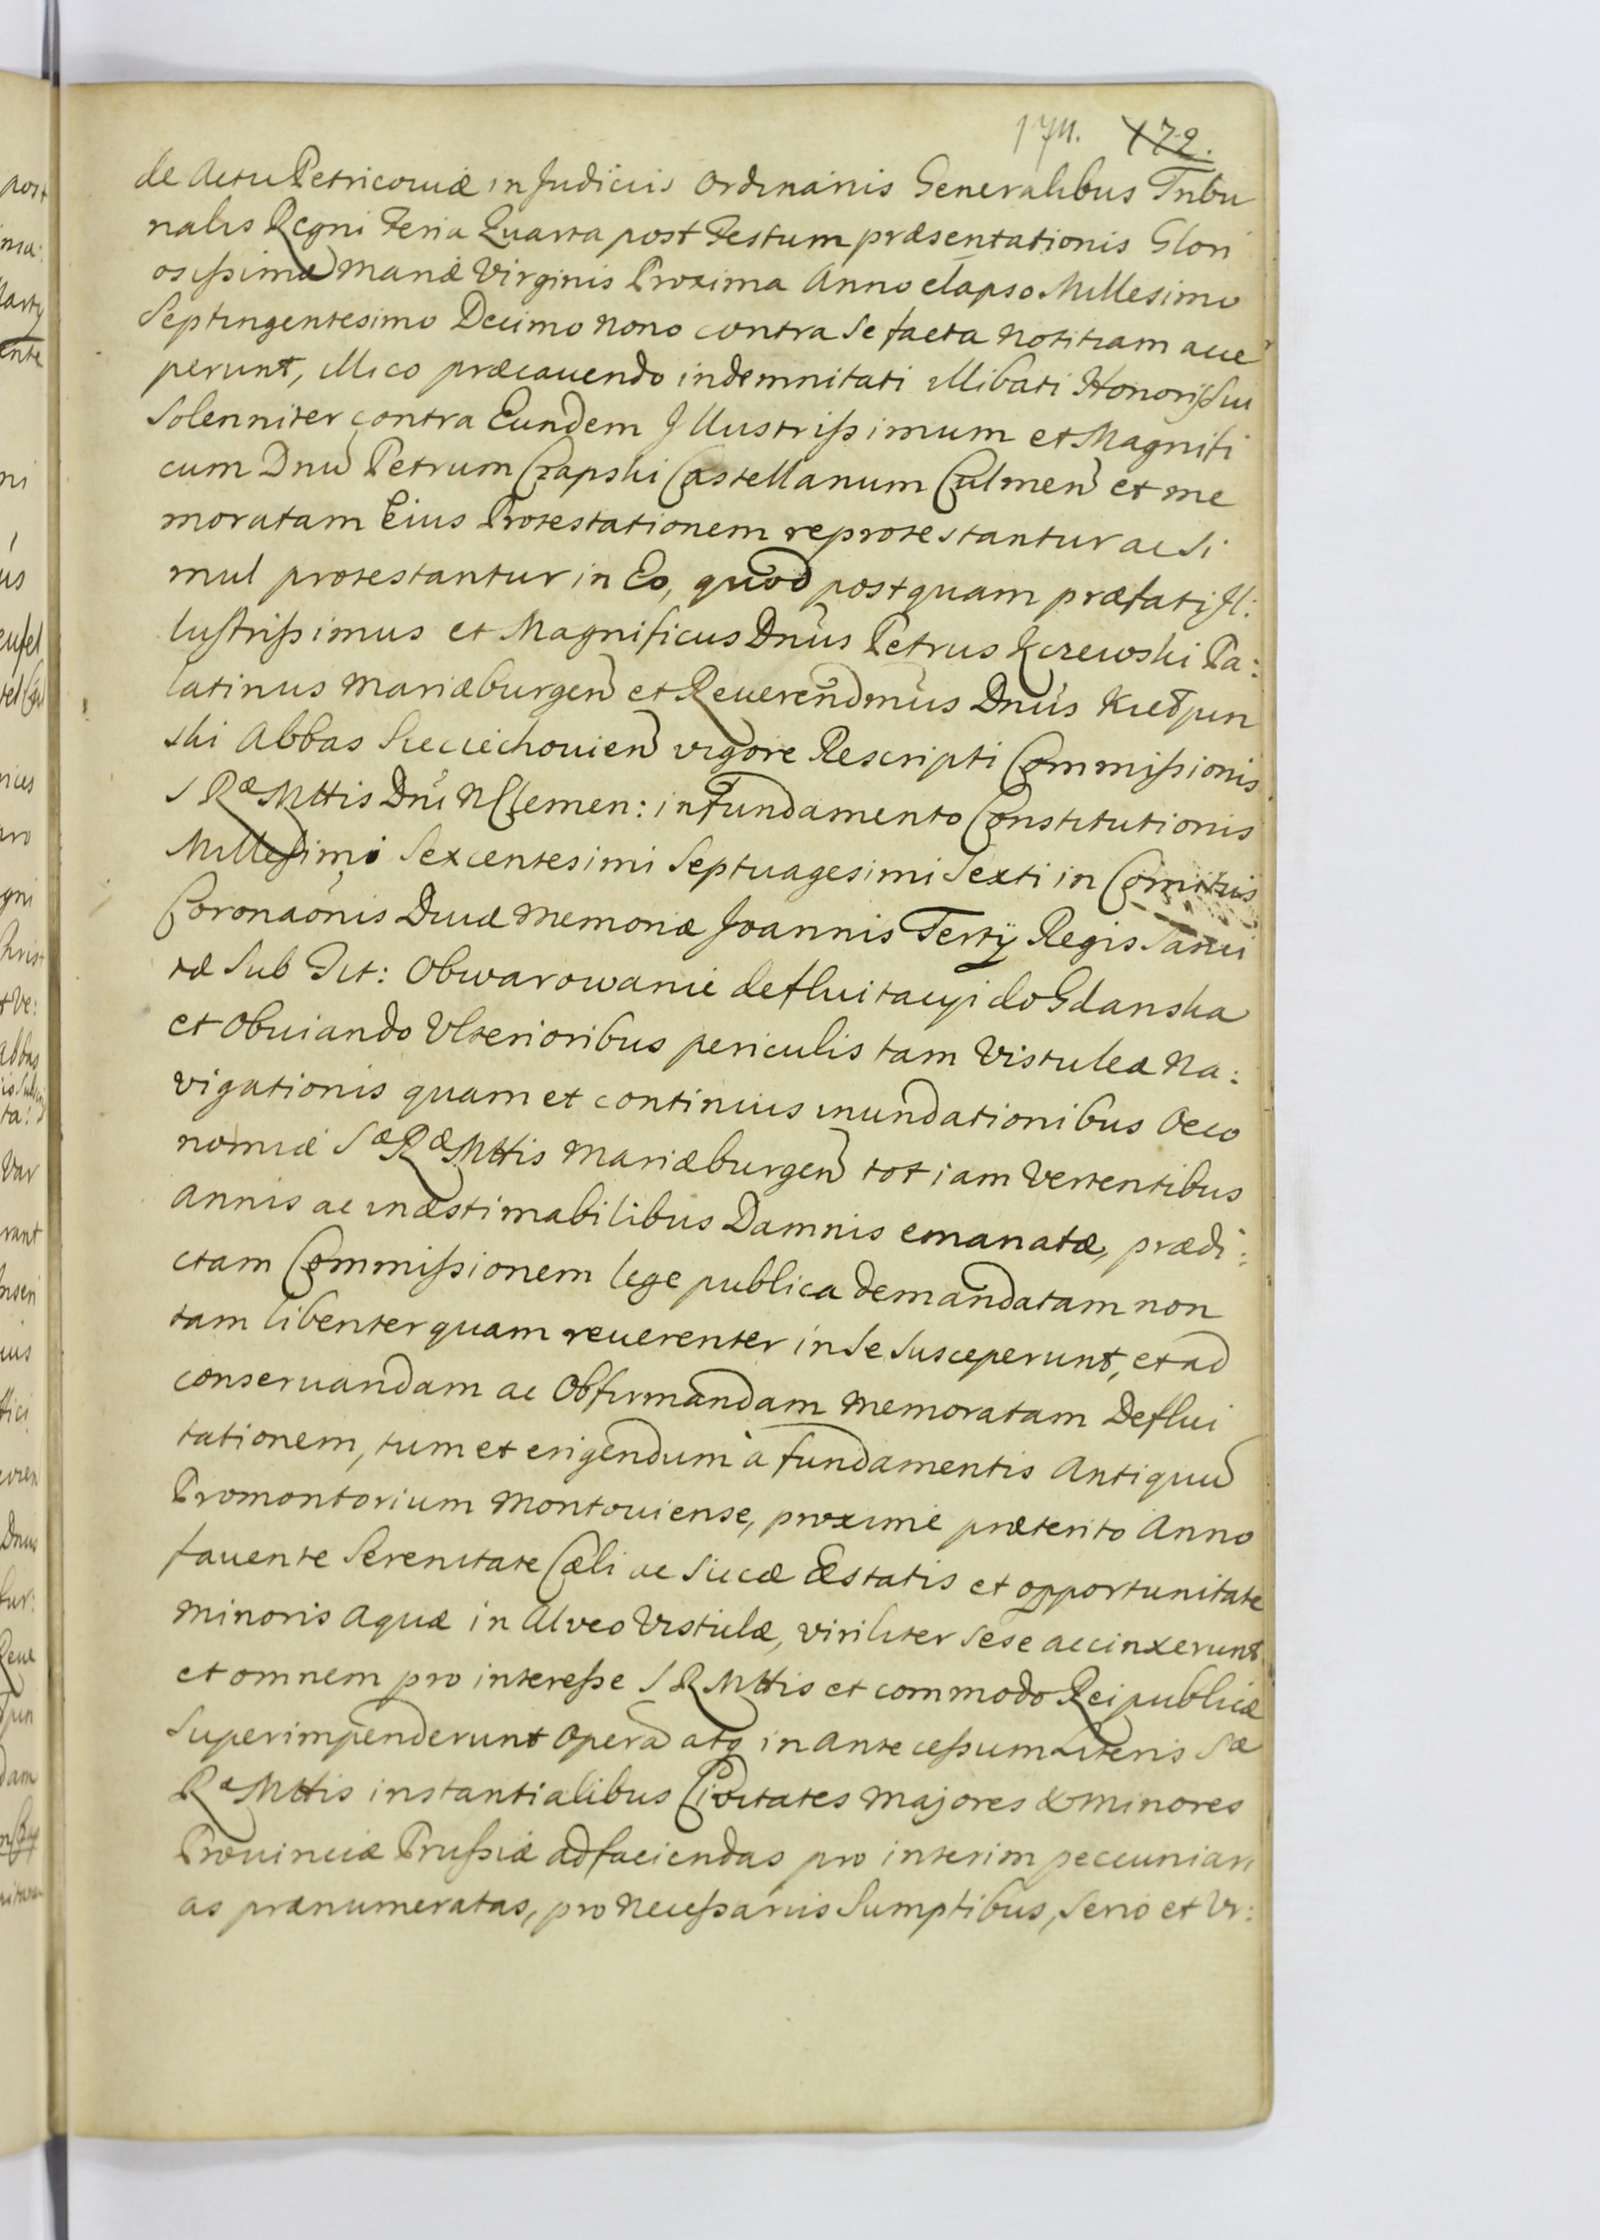 174. 172.
de Actu Petricoviæ in Judiciis Ordinariis Generalibus Tribu
nalis Regni Feria Quarta post Festum præsentationis Glori
osissimæ Mariæ Virginis Proxima Anno elapso Millesimo
Septingentesimo Decimo nono contra se facta notitiam acce
perunt, illico præcavendo indemnitati illibati Honoris sui
Solenniter contra Eundem Illustrissimum et Magnifi
cum Dnũ Petrum Czapski Castellanum Culmeñ et me
moratam Eius Protestationem reprotestantur ac Si
mul protestantur in Eo, quod postquam præfati Il:
lustrissimus et Magnificus Dnus Petrus Kczewski Pa:
latinus Mariæburgeñ et Reverendmus Dnus Kiełpin
ski Abbas Sieciechovieñ vigore Rescripti Commissionis
S Ræ Mttis Dni N Clemen: in fundamento Constitutionis
Millesimi Sexcentesimi Septuagesimi Sexti in Comitiis
Coronaõnis Divæ Memoriæ Joannis Tertÿ Regis Sanci
tæ Sub Tit: Obwarowanie defluitacyi do Gdanska
et Obviando Ulterioribus periculis tam Vistuleæ Na:
vigationis quam et continuis inundationibus Oeco
nomiæ Sæ Ræ Mttis Mariæburgeñ tot iam Vertentibus
annis ac inæstimabilibus Damnis emanatæ, prædi:
ctam Commissionem lege publica demandatam non
tam libenter quam reverenter in Se Susceperunt, et ad
conservandam ac Obfirmandam Memoratam Deflui
tationem, tum et erigendum à fundamentis Antiquũ
Promontorium Montoviense, proxime præterito Anno
favente Serenitate Cæli ac Siccæ Æstatis et opportunitate
Minoris Aquæ in Alveo Vistulæ, viriliter Sese accinxerunt
et omnem pro interesse S R Mttis et commodo Reipublicæ
Superimpenderunt Operã atq in antecessum Literis Sæ
Ræ Mttis instantialibus Civitates Majores & Minores
Provinciæ Prussiæ ad faciendas pro interim pecuniari
as prænumeratas, pro Necessariis Sumptibus, Serio et Ur: